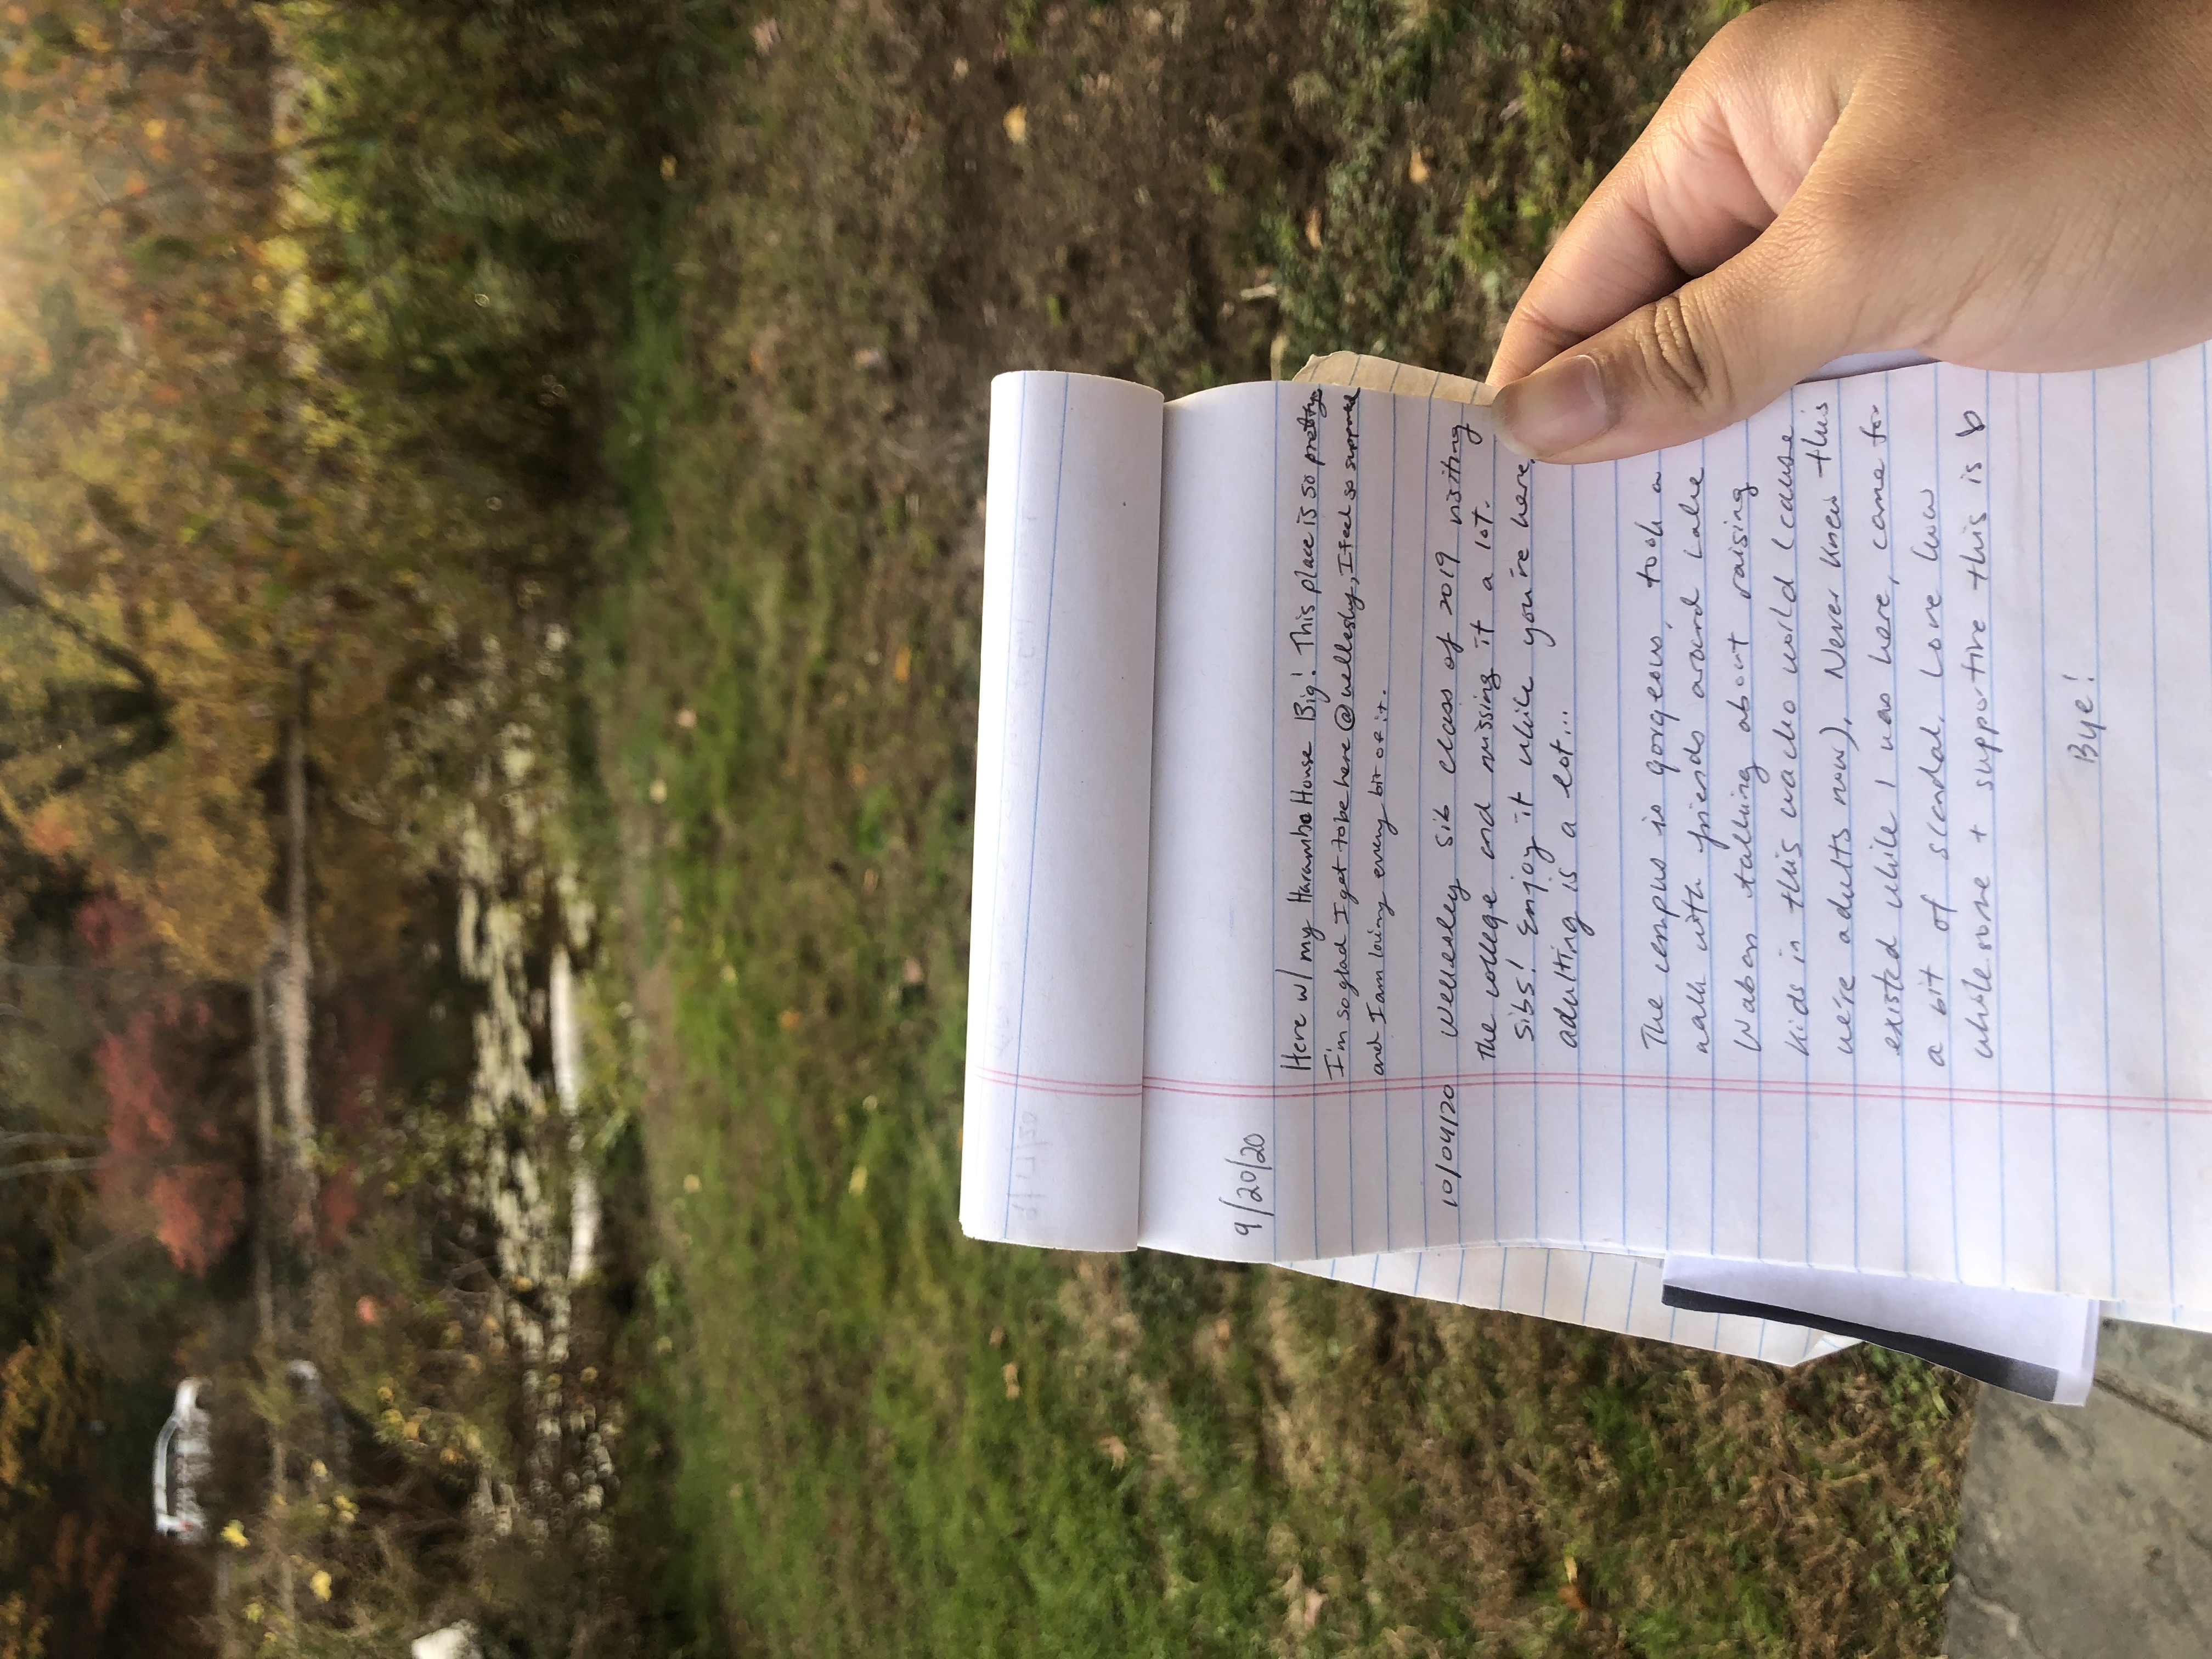 9/20/20
Here w/ my Harambe House Big! This place is so pretty.
I'm so glad I get to be here @ wellesley, I feel so supported
and I am loving every bit of it.
10/04/20 Wellesley Sib class of 2019 visiting
the college and missing it a lot.
Sibs! Enjoy it while you're here,
adulting is a lot...
The campus is gorgeous, took a
walk with friends around Lake
Waban talking about raising
kids in this wacko world (cause
we're adults now). Never knew this
existed while I was here, came for
a bit of scandal. Love how
wholesome + supportive this is
Bye!